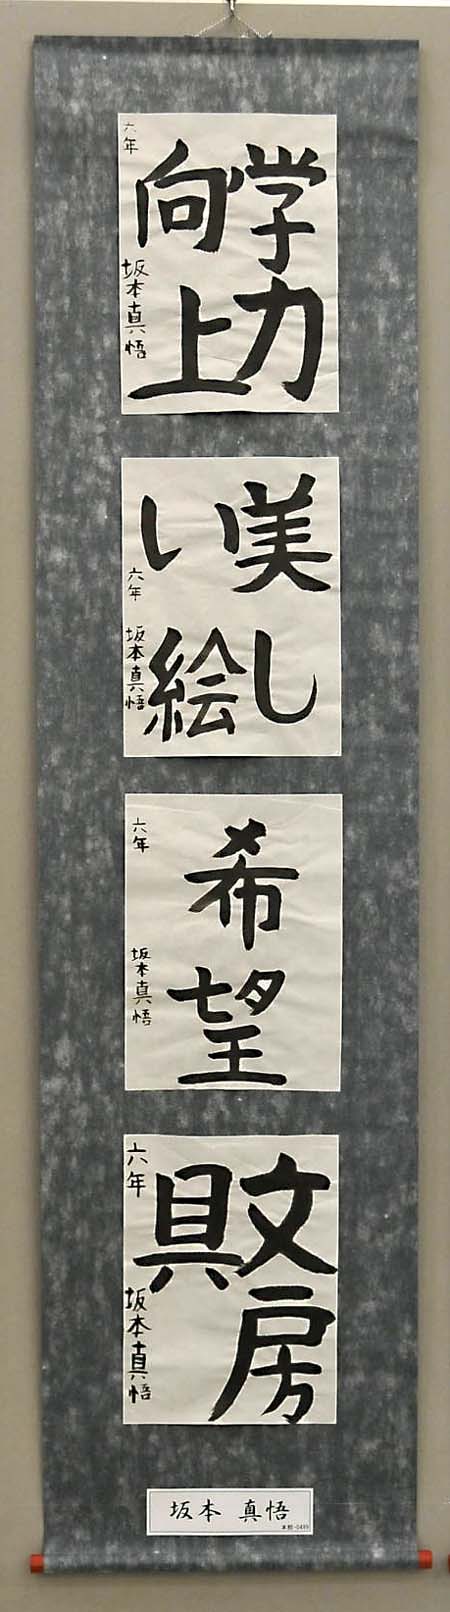 学力
向上
六年
坂本真悟
美し
い絵
六年
坂本真悟
希望
六年
坂本真悟
文房
具
六年
坂本真悟
坂本 真悟